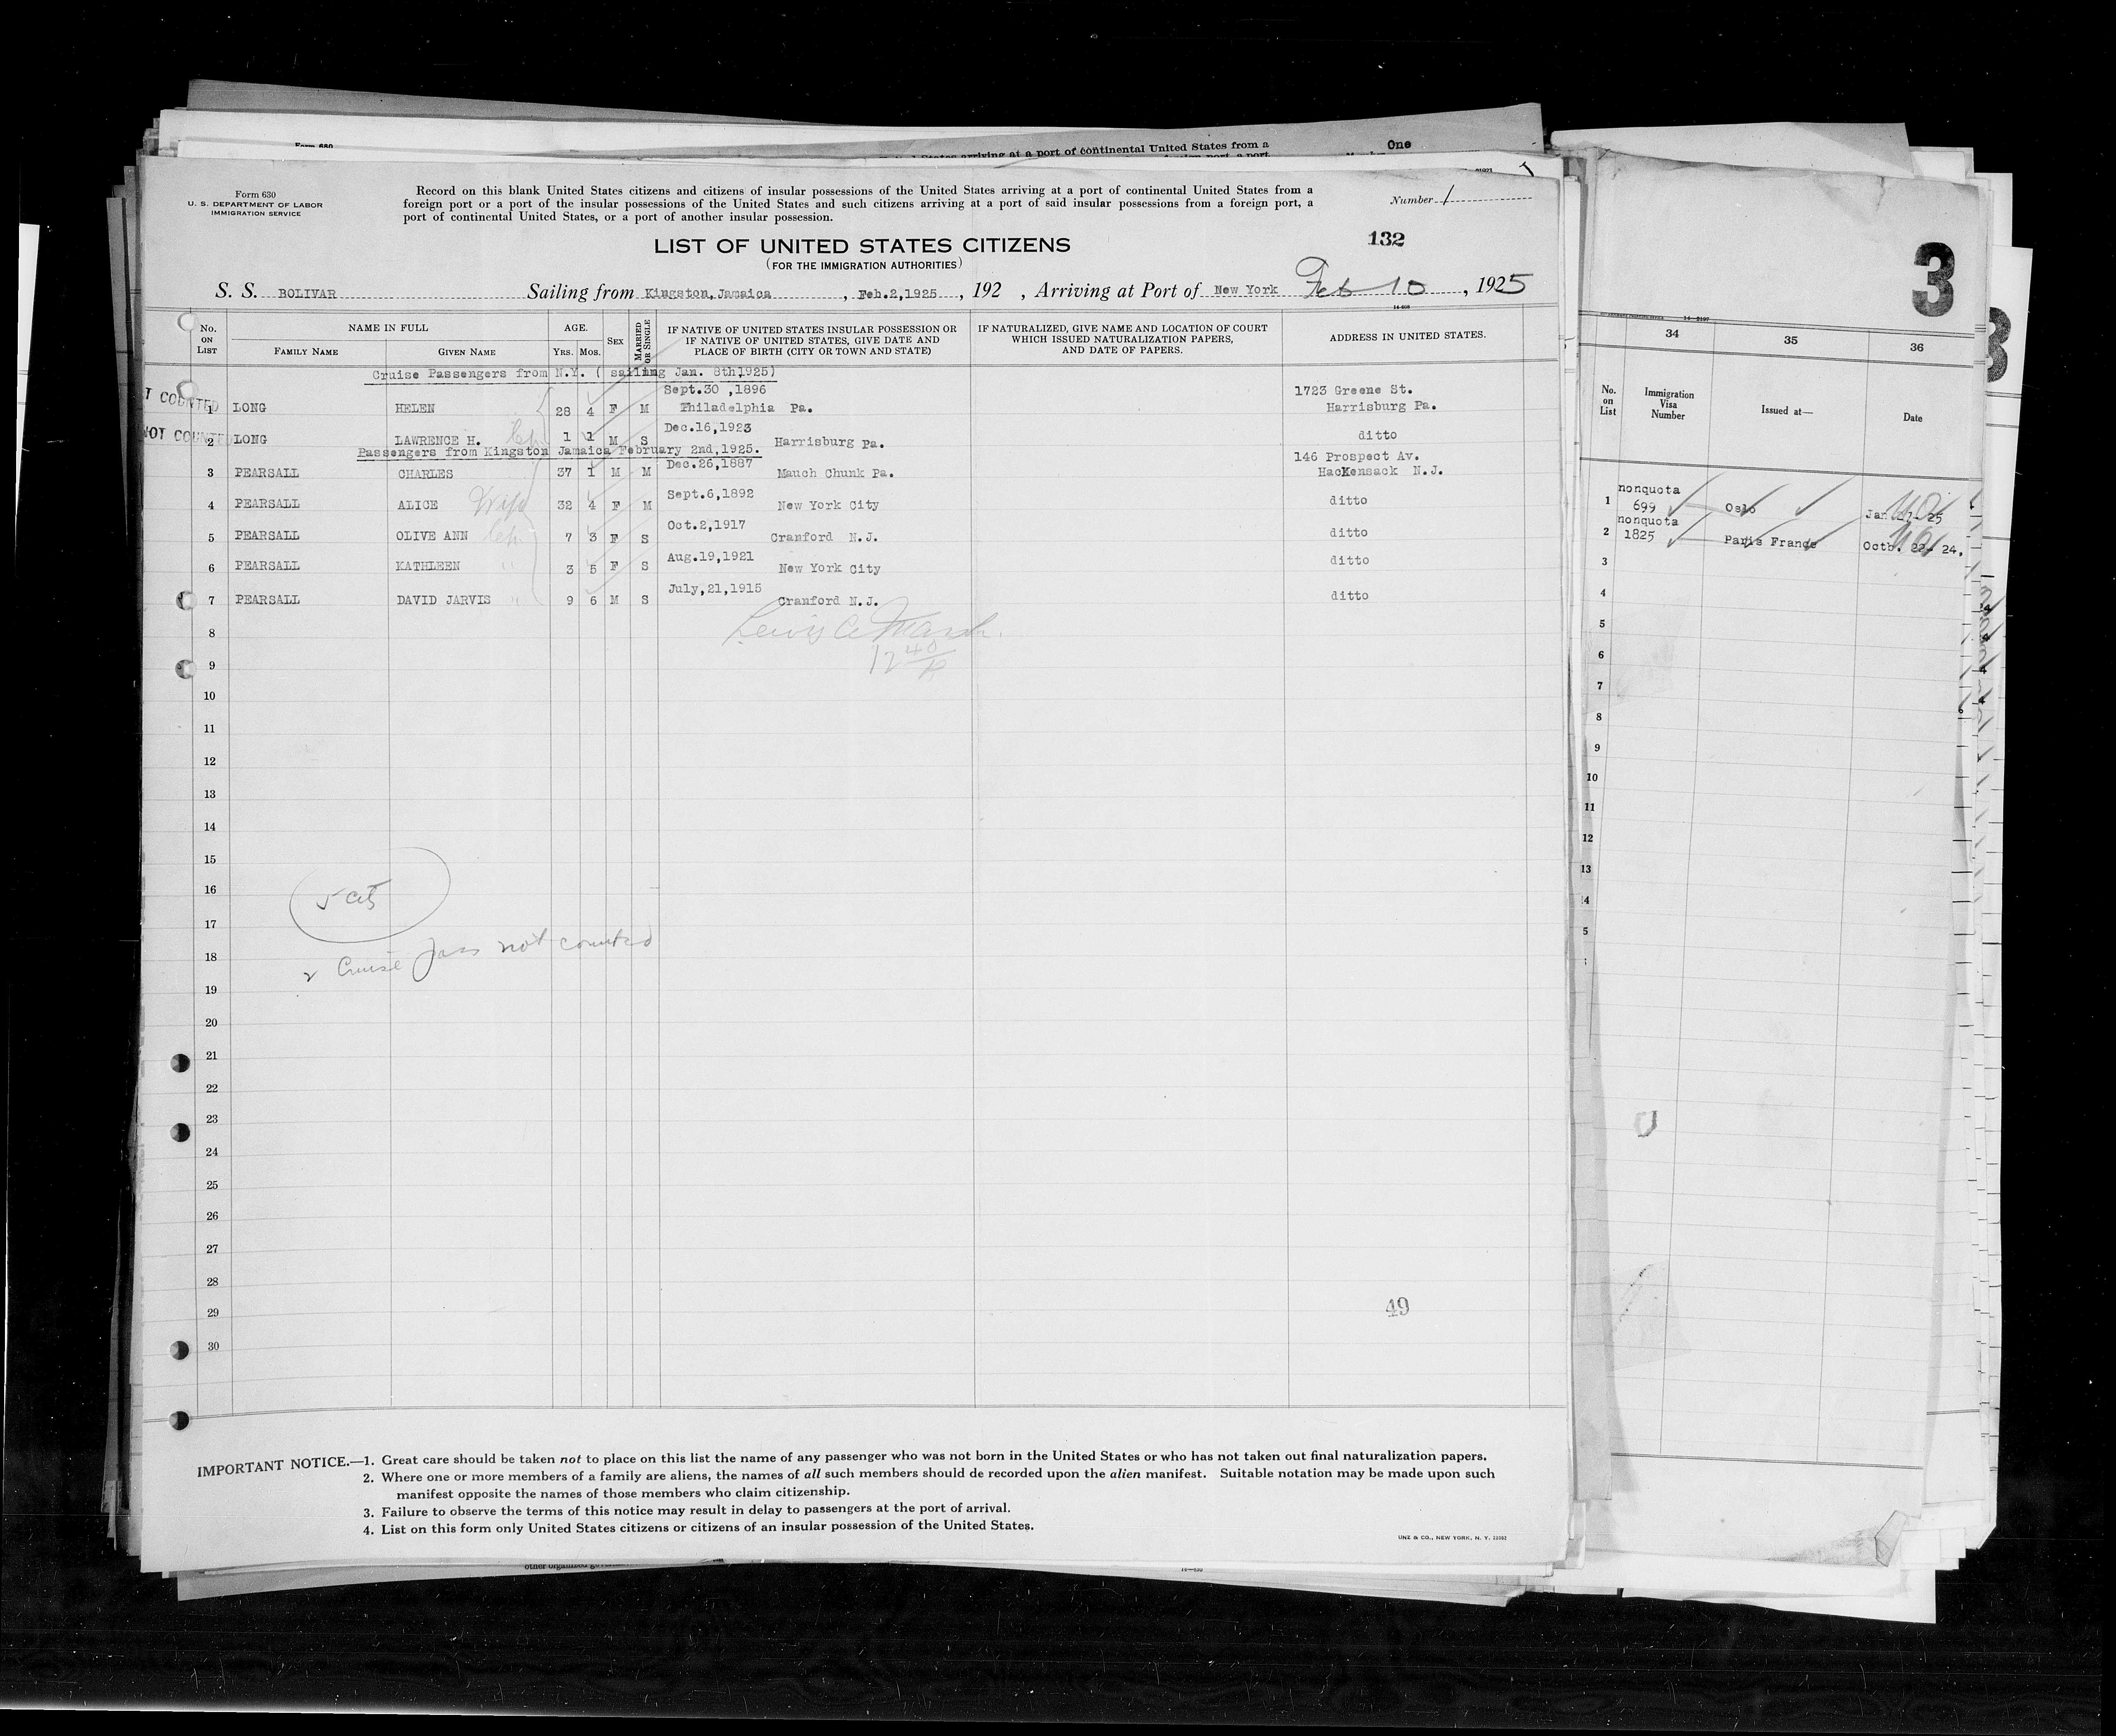 Form 630
U. S. DEPARTMENT OF LABOR
IMMIGRATION SERVICE
Record on this blank United States citizens and citizens of insular possessions of the United States arriving at a port of continental United States from a
foreign port or a port of the insular possessions of the United States and such citizens arriving at a port of said insular possessions from a foreign port, a
port of continental United States, or a port of another insular possession.
Number 1
LIST OF UNITED STATES CITIZENS
(FOR THE IMMIGRATION AUTHORITIES)
132
S. S. BOLIVAR Sailing from Kingston, Jamaica, Feb.2,1925, 192 , Arriving at Port of New York Feb 10, 1925
No. on List NAME IN FULL FAMILY NAME GIVEN NAME AGE. Yrs. Mos. SEX MARRIED OR SINGLE IF NATIVE OF UNITED STATES INSULAR POSSESSION OR IF NATIVE OF UNITED STATES, GIVE DATE AND PLACE OF BIRTH (CITY OR TOWN AND STATE) IF NATURALIZED, GIVE NAME AND LOCATION OF COURT WHICH ISSUED NATURALIZATION PAPERS, AND DATE OF PAPERS. ADDRESS IN UNITED STATES.
Cruise Passengers from N.Y. ( sailing Jan. 8th,1925)
T COUNTED 1 LONG HELEN 28 4 F M Sept.30 ,1896 Philadelphia Pa. 1723 Greene St. Harrisburg Pa.
NOT COUNTED 2 LONG LAWRENCE H. 1 1 M S Dec.16,1923 Harrisburg Pa. ditto
Passengers from Kingston Jamaica February 2nd,1925.
3 PEARSALL CHARLES 37 1 M M Dec.26,1887 Mauch Chunk Pa. 146 Prospect Av. HacKensack N.J.
4 PEARSALL ALICE Wife 32 4 F M Sept.6,1892 New York City ditto
5 PEARSALL OLIVE ANN 7 3 F S Oct.2,1917 Cranford N.J. ditto
6 PEARSALL KATHLEEN " 3 5 F S Aug.19,1921 New York City ditto
7 PEARSALL DAVID JARVIS " 9 6 M S July,21,1915 Cranford N.J. ditto
8
9
10
11
12
13
14
15
16
17
18
19
20
21
22
23
24
25
26
27
28
29
30
2 Cruise pass not counted
49
IMPORTANT NOTICE.—1. Great care should be taken not to place on this list the name of any passenger who was not born in the United States or who has not taken out final naturalization papers.
2. Where one or more members of a family are aliens, the names of all such members should de recorded upon the alien manifest. Suitable notation may be made upon such
manifest opposite the names of those members who claim citizenship.
3. Failure to observe the terms of this notice may result in delay to passengers at the port of arrival.
4. List on this form only United States citizens or citizens of an insular possession of the United States.
UNZ & CO., NEW YORK, N. Y. 22582
3
34 35 36
No. on List Immigration Visa Number Issued at— Date
1 nonquota 699 Oslo Jan 25
2 nonquota 1825 Paris France Octb. 22 24.
3
4
5
6
7
8
9
10
11
12
13
14
5